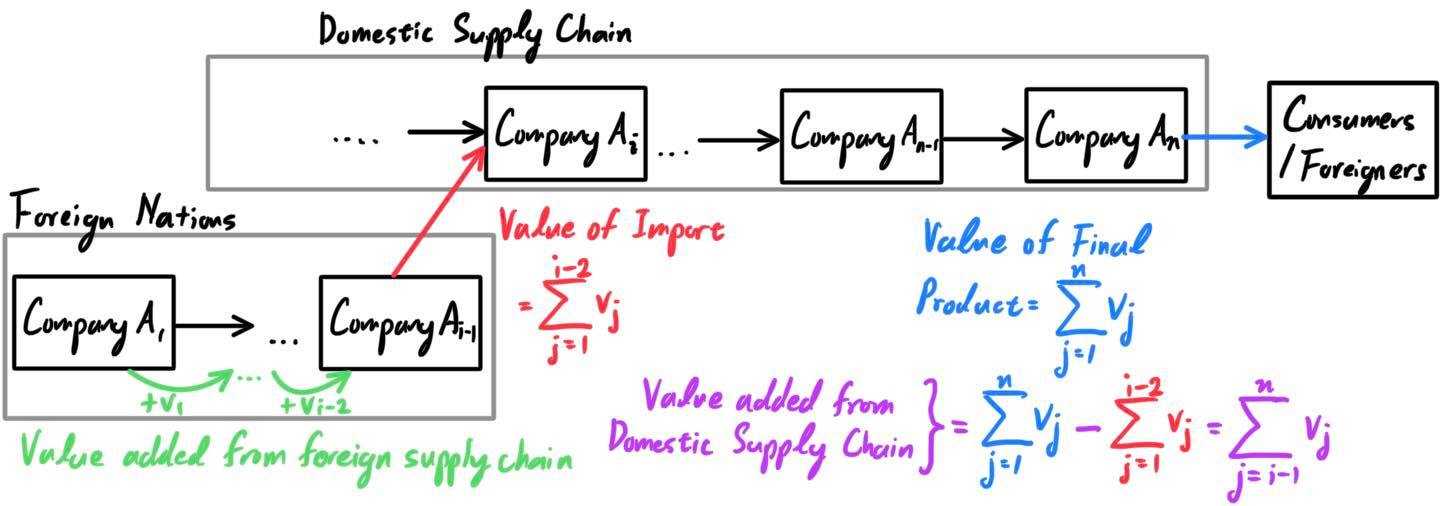 Domestic Supply Chain
.... Company Aᵢ ... Company Aₙ₋₁ Company Aₙ Consumers
/Foreigners
Foreign Nations
Company A₁ ... Company Aᵢ₋₁
+v₁ ... +vᵢ₋₂
Value added from foreign supply chain
Value of Import
= ∑_{j=1}^{i-2} v_j
Value of Final
Product = ∑_{j=1}^{n} v_j
Value added from
Domestic Supply Chain } = ∑_{j=1}^{n} v_j - ∑_{j=1}^{i-2} v_j = ∑_{j=i-1}^{n} v_j